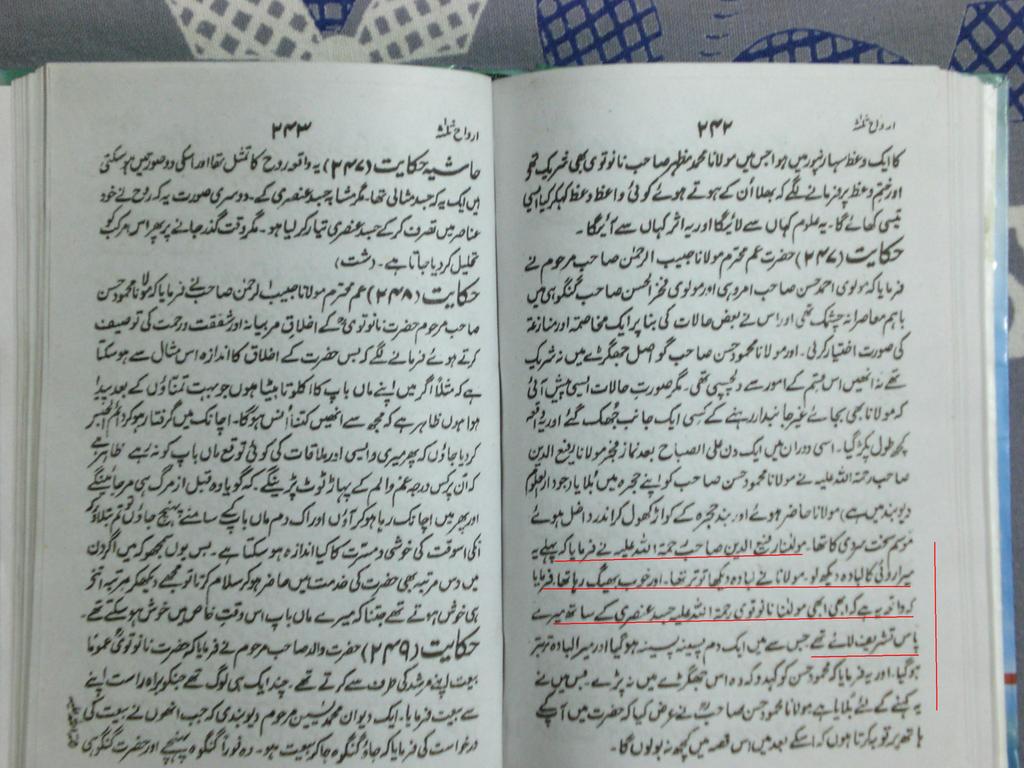 ارواح ثلٰثہ
۲۴۲
کا ایک وعظ سہارنپور میں ہوا جس میں مولانا محمد مظہر صاحب نانوتوی بھی شریک تھے
اور ختم وعظ پر فرمانے لگے کہ بھلا ان کے ہوتے ہوئے کوئی واعظ وعظ کہہ کر کیا اپنی
تیسی کھائے گا۔ یہ علوم کہاں سے لائیگا اور یہ اثر کہاں سے آئیگا۔
حکایت (۲۴۷) حضرت عم محترم مولانا حبیب الرحمٰن صاحب مرحوم نے
فرمایا کہ مولوی احمد حسن صاحب امروہی اور مولوی فخر الحسن صاحب گنگوہی میں
باہم معاصرانہ چشمک تھی اور اس نے بعض حالات کی بنا پر ایک مخاصمہ اور منازعہ
کی صورت اختیار کر لی۔ اور مولانا محمود حسن صاحب گو اصل جھگڑے میں نہ شریک
تھے نہ انھیں اس قسم کے امور سے دلچسپی تھی۔ مگر صورت حالات ایسی پیش آئی
کہ مولانا بھی بجائے غیر جانبدار رہنے کے کسی ایک جانب جھک گئے اور یہ واقعہ
کچھ طول پکڑ گیا۔ اسی دوران میں ایک دن علی الصباح بعد نماز فجر مولانا رفیع الدین
صاحب رحمۃ اللہ علیہ نے مولانا محمود حسن صاحب کو اپنے حجرہ میں بلایا (جو دارالعلوم
دیوبند میں ہے) مولانا حاضر ہوئے اور بند حجرہ کے کواڑ کھول کر اندر داخل ہوئے
موسم سخت سردی کا تھا۔ مولٰنا رفیع الدین صاحب رحمۃ اللہ علیہ نے فرمایا کہ پہلے یہ
میرا روئی کا لبادہ دیکھ لو۔ مولانا نے لبادہ دیکھا تو تر تھا۔ اور خوب بھیگ رہا تھا۔ فرمایا
کہ واقعہ یہ ہے کہ ابھی ابھی مولٰنا نانوتوی رحمۃ اللہ علیہ جسد عنصری کے ساتھ میرے
پاس تشریف لائے تھے جس سے میں ایک دم پسینہ پسینہ ہو گیا اور میرا لبادہ تر بتر
ہو گیا۔ اور یہ فرمایا کہ محمود حسن کو کہدو کہ وہ اس جھگڑے میں نہ پڑے۔ بس میں نے
یہ کہنے کے لئے بلایا ہے مولانا محمود حسن صاحب نے عرض کیا کہ حضرت میں آپکے
ہاتھ پر توبہ کرتا ہوں کہ اسکے بعد میں اس قصہ میں کچھ نہ بولوں گا۔
ارواح ثلٰثہ
۲۴۳
حاشیہ حکایت (۲۴۷) یہ واقعہ روح کا تمثل تھا اور اسکی دو صورتیں ہو سکتی
ہیں ایک یہ کہ جسد مثالی تھا۔ مگر مشابہ جسد عنصری کے۔ دوسری صورت یہ کہ روح نے خود
عناصر میں تصرف کر کے جسد عنصری تیار کر لیا ہو۔ مگر وقت گذر جانے پر پھر اس مرکب کو
تحلیل کر دیا جاتا ہے۔ (شت)
حکایت (۲۴۸) عم محترم مولانا حبیب الرحمٰن صاحب نے فرمایا کہ مولانا محمود حسن
صاحب مرحوم حضرت نانوتوی کے اخلاق مربیانہ اور شفقت و رحمت کی توصیف
کرتے ہوئے فرمانے لگے کہ بس حضرت کے اخلاق کا اندازہ اس مثال سے ہو سکتا
ہے کہ مثلاً اگر میں اپنے ماں باپ کا اکلوتا بیٹا ہوں جو بہت تمناؤں کے بعد پیدا
ہوا ہوں ظاہر ہے کہ مجھ سے انھیں کتنا اُنس ہوگا۔ اچانک میں گرفتار ہو کر دائم الحبس
کر دیا جاؤں کہ پھر میری واپسی اور ملاقات کی کوئی توقع ماں باپ کو نہ رہے ظاہر ہے
کہ ان پر کس درجہ غم و الم کے پہاڑ ٹوٹ پڑینگے۔ کہ گویا وہ قبل از مرگ ہی مر جائینگے
اور پھر میں اچانک رہا ہو کر آؤں اور اک دم ماں باپ کے سامنے پہنچ جاؤں تو تم بتلاؤ کہ
انکی اسوقت کی خوشی و مسرت کا کیا اندازہ ہو سکتا ہے۔ بس یوں سمجھو کہ میں اگر دن
میں دس مرتبہ بھی حضرت کی خدمت میں حاضر ہو کر سلام کرتا تو مجھے دیکھکر ہر مرتبہ اتنے
ہی خوش ہوتے تھے جتنا کہ میرے ماں باپ اس وقت خاص میں خوش ہو سکتے تھے۔
حکایت (۲۴۹) حضرت والد صاحب مرحوم نے فرمایا کہ حضرت نانوتوی عموماً
بیعت اپنے مرشد کی طرف سے کرتے تھے۔ چند ایک ہی لوگ تھے جنکو براہ راست اپنے
سے بیعت فرمایا۔ ایک دیوان محمد یٰسین مرحوم دیوبندی کہ جب انھوں نے بیعت کی
درخواست کی فرمایا کہ جاؤ گنگوہ جا کر بیعت ہو۔ وہ فوراً گنگوہ پہنچے اور حضرت گنگوہی